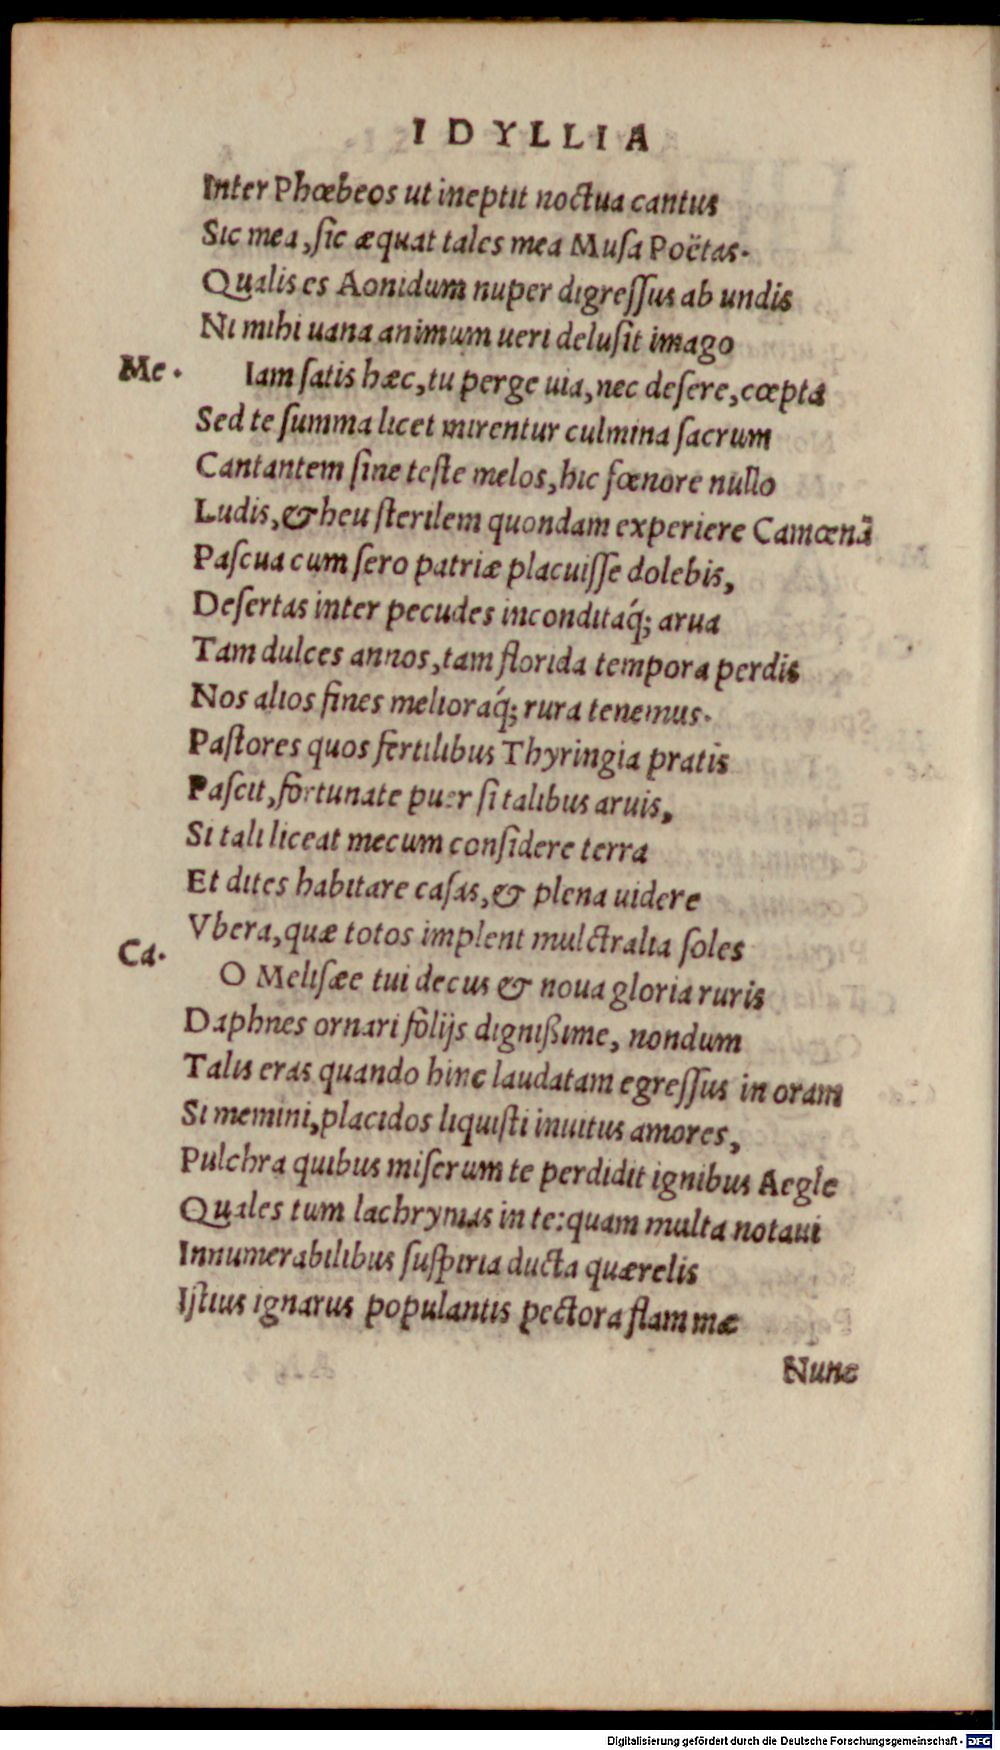 IDYLLIA
Inter Phœbeos ut ineptit noctua cantus
Sic mea, ſic æquat tales mea Muſa Poëtas.
Qualis es Aonidum nuper digreſſus ab undis
Ni mihi uana animum ueri deluſit imago
Me. Iam ſatis hæc, tu perge uia, nec deſere, cœpta
Sed te ſumma licet mirentur culmina ſacrum
Cantantem ſine teſte melos, hic fœnore nullo
Ludis, & heu ſterilem quondam experiere Camœnã
Paſcua cum ſero patriæ placuiſſe dolebis,
Deſertas inter pecudes inconditaq́; arua
Tam dulces annos, tam florida tempora perdis
Nos alios fines melioraq́; rura tenemus.
Paſtores quos fertilibus Thyringia pratis
Paſcit, fortunate puer ſi talibus aruis,
Si tali liceat mecum conſidere terra
Et dites habitare caſas, & plena uidere
Vbera, quæ totos implent mulctralia ſoles
Ca. O Meliſæe tui decus & noua gloria ruris
Daphnes ornari folijs digniſſime, nondum
Talis eras quando hinc laudatam egreſſus in oram
Si memini, placidos liquiſti inuitus amores,
Pulchra quibus miſerum te perdidit ignibus Aegle
Quales tum lachrymas in te: quam multa notaui
Innumerabilibus ſuſpiria ducta quærelis
Iſtius ignarus populantis pectora flammæ
Nunc
Digitalisierung gefördert durch die Deutsche Forschungsgemeinschaft - DFG